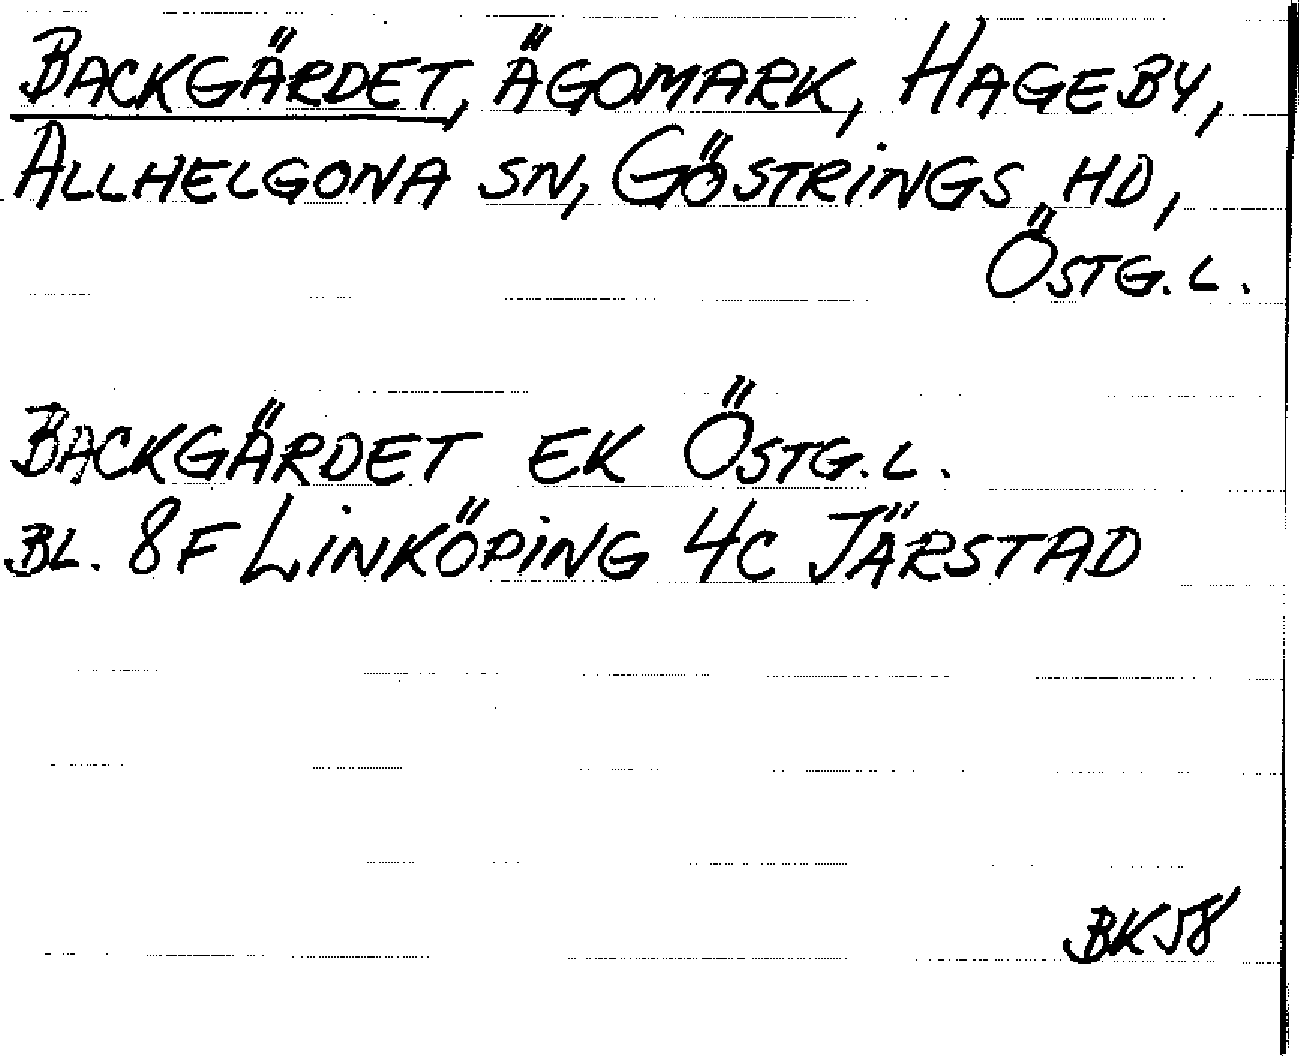 BACKGÄRDET, ÄGOMARK, HAGEBY,
ALLHELGONA SN, GÖSTRINGS HD,
ÖSTG. L.
BACKGÄRDET EK ÖSTG. L.
BL. 8F LINKÖPING 4C JÄRSTAD
BK58